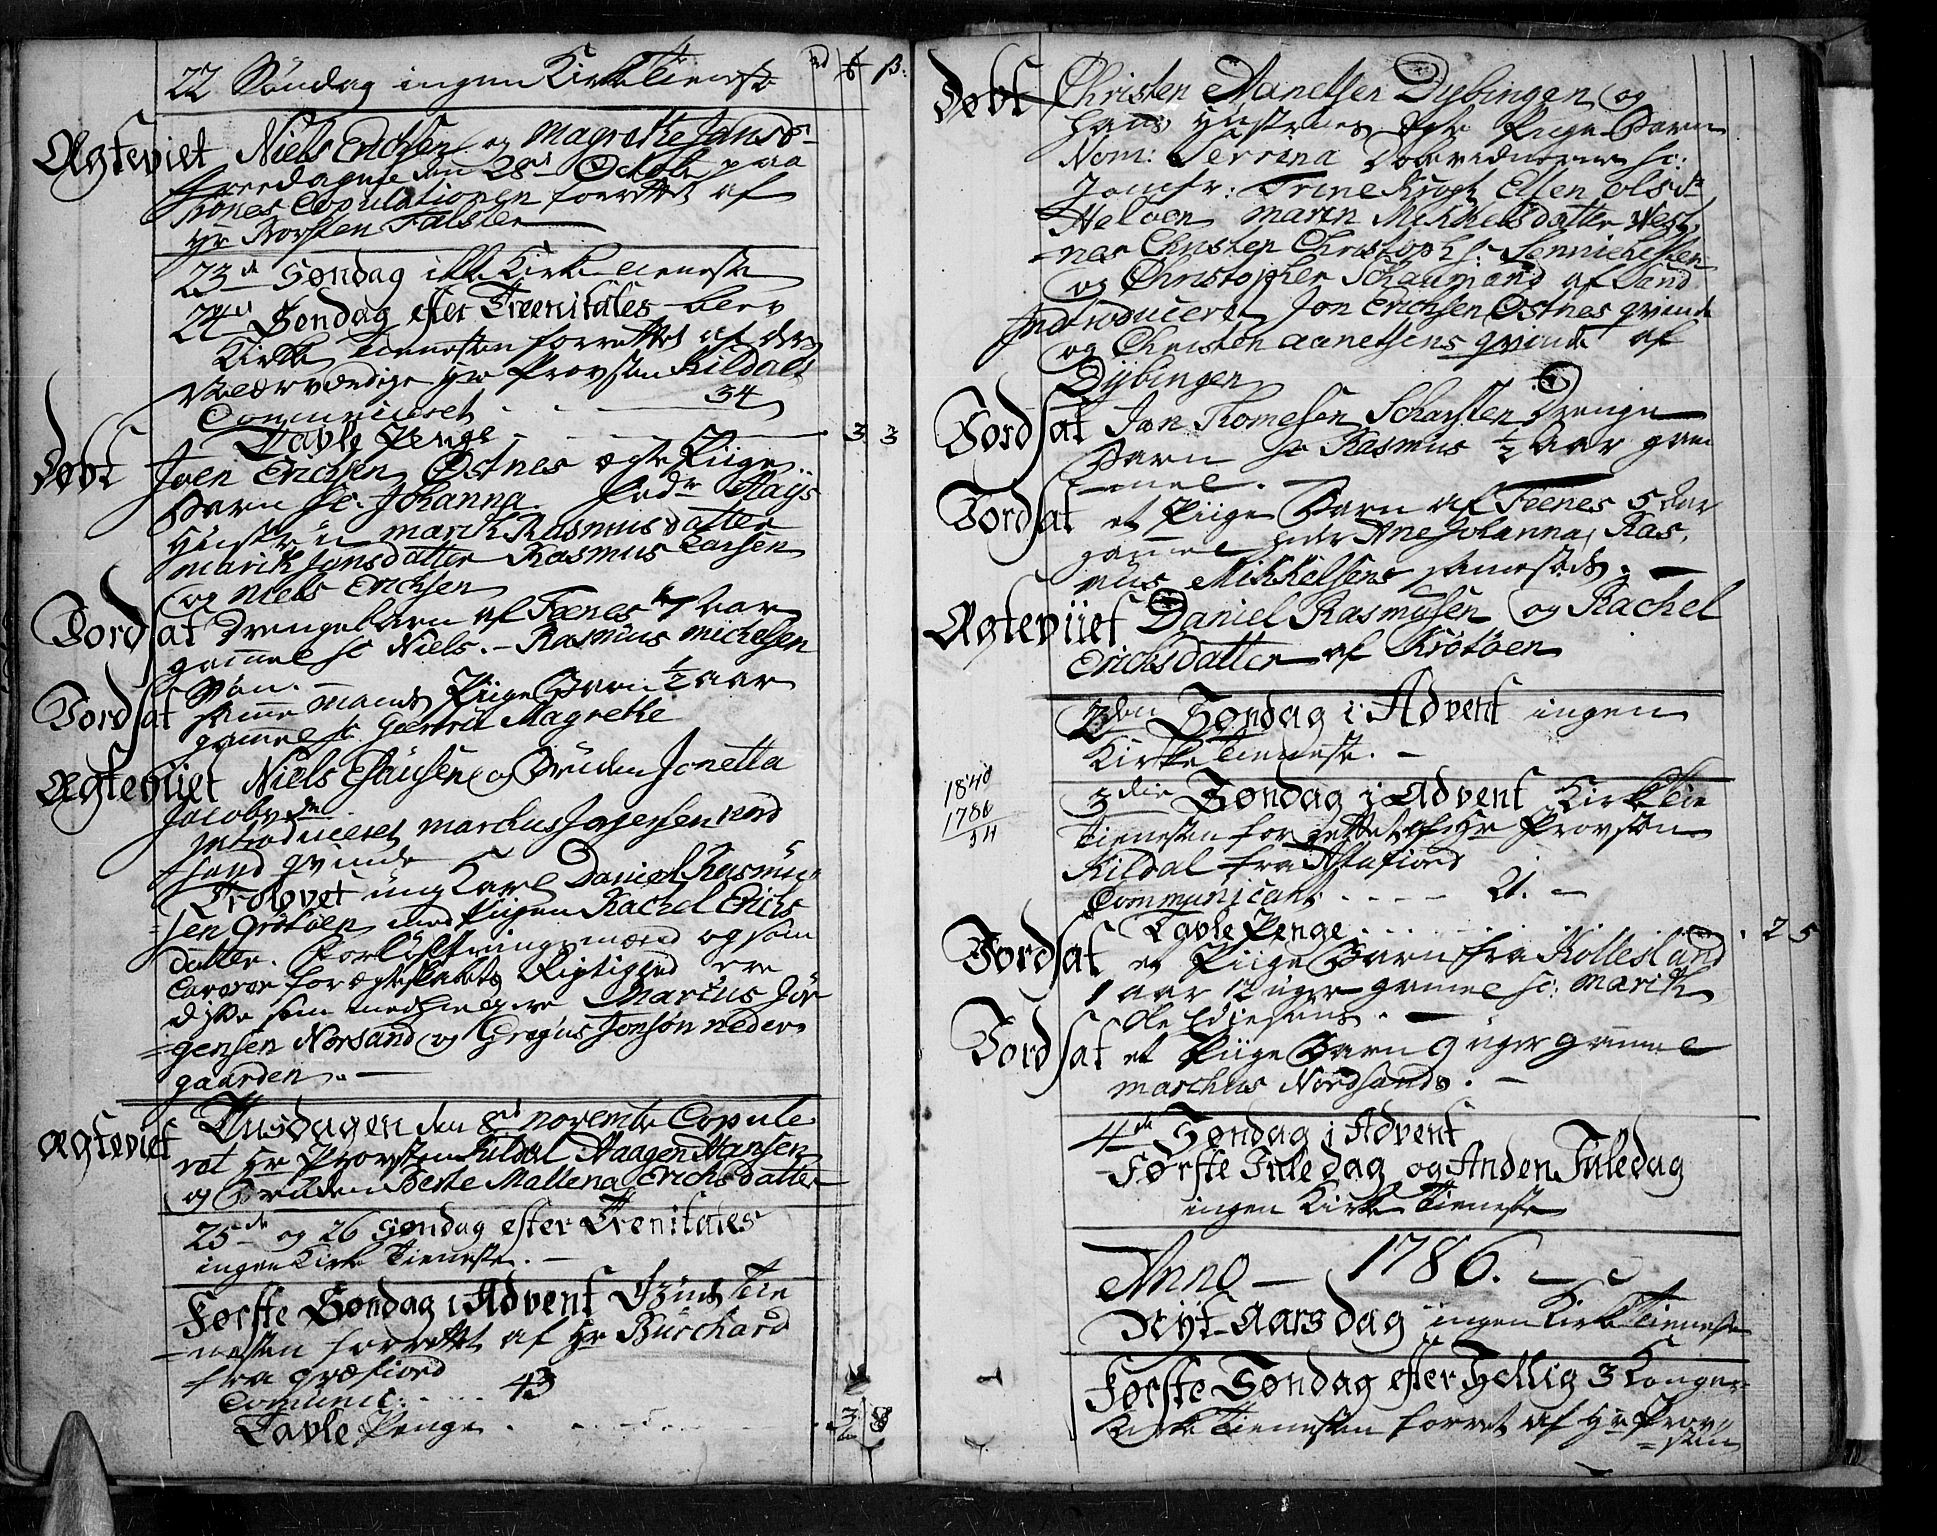 22 Søndag ingen Kirke Tieneste
rd ß:
Ægteviet Niels Erichsen og Magrethe Jansd:
Freedagen den 28de Octobr paa
Copulationen forrettet af
Hr Torsten Falster
23de Søndag ikke Kirke tieneste
24de Søndag efter Treenitates blev
Kirke Tienesten forrettet af den
Velærværdige Hr Provsten Kildals
Communiceret - - - 34
Tavle Penge - - - 3 3
Døbt Joen Erichsen Østnes ægte Piige
Barn sc. Johanna. Fadr Aags
Hustrue Marith Rasmusdatter
Marith Jonsdatter Rasmus Larsen
og Niels Erichsen
Jordsat Drengebarn af Feenes 7 Aar
gammel sc Niels. - Rasmus Michelsen
Søn. -
Jordsat samme mands Piige Barn ½ aar
gammel sc Giertrud Magrethe
Ægteviiet Niels Clausen og Bruden Jonetta
Jacobsdtr
Introduceret Marchus Jørgensen Nord
sand qvinde
Trolovet ung Karl Daniel Rasmu-
sen Grøtøen med Piigen Rachel Erichs
datter. Forlovningsmænd og som
Caverer for ægteskabets Rigtighed ere
disse som medfølgere Marcus Jør
gensen Norsand og Gregus Jonsøn neder
gaarden. -
Ægteviet Tiisdagen den 8de novembr Copule
ret Hr Provsten Kildal Haagen Hansen
og Bruden Berte Mallena Erichsdatter
25de og 26 Søndag efter Trenitates
ingen Kirke Tieneste. -
Første Søndag i Advent Guds Tie
nesten forrettet af Hr Burchard
fra Græfiord
Comunic: - - - 43
Tavle Penge - - - 3 8
Døbt Christen Aanetsen Dybingen og
hans Hustrues Piige Barn
Nom: Serrina Dobvidnerne sc:
Jomfr: Trine Krogh Ellen Olsdtr
Heløen Marin Mikkelsdatter Nest
nes Christen Christoph: Senniehesten
og Christopher Schaumand af Sand
Introduceret Jon Erichsen Østnes qvinde
og Christen aanetsens qvinde af
Dybingen
Jordsat Jan Thomesen Scharsten Drenge
Barn sc Rasmus ½ Aar gam
mel. -
Jordsat et Piige Barn af Feenes 5 Aar
gammel heder Ane Johanna, Ras
mus Mikkelsens sammesteds. -
Ægteviiet Daniel Rasmusen og Rachel
Erichsdatter af Grøtøen
2den Søndag i Advent ingen
Kirke Tieneste. -
1840
1786
54
3die Søndag i Advent Kirke Tie
Tienesten forrettet af Hr Provsten
Kildal fra Astafiord
Communicant - - - 21. -
Tavle Penge - - - 2 5
Jordsat et Piige Barn fra Kollesland
1 aar 12 uger gamel sc: Marith
Ole Ediesens. -
Jordsat et Piige Barn 9 uger gammel
Marchus Nordsands. -
4de Søndag i Advent
Første Jule dag og Anden Juledag
ingen Kirke Tieneste
Anno - 1786. -
Nyt-Aars dag ingen Kirke Tieneste
Første Søndag efter Hellig 3 Konger
Kirke Tienesten forret af Hr Prov
sten